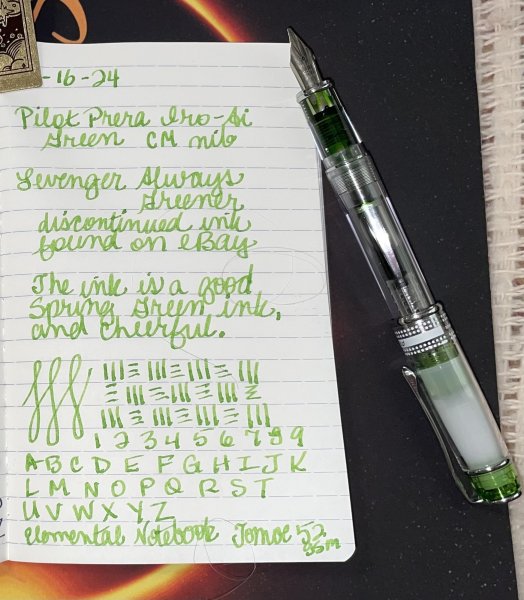 -16-24
Pilot Prera Iro-Ai
Green CM nib
Levenger Always
Greener
discontinued ink
found on eBay
The ink is a good
Spring Green ink,
and cheerful.
1 2 3 4 5 6 7 8 9
A B C D E F G H I J K
L M N O P Q R S T
U V W X Y Z
Elemental Notebook Tomoe 52
gsm